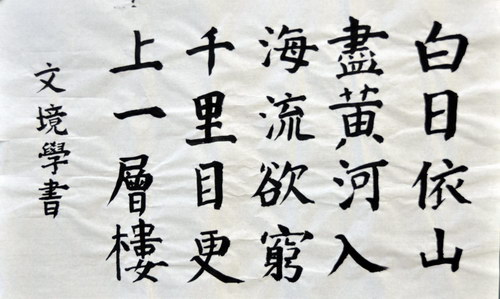 白日依山
盡黃河入
海流欲窮
千里目更
上一層樓
文境學書